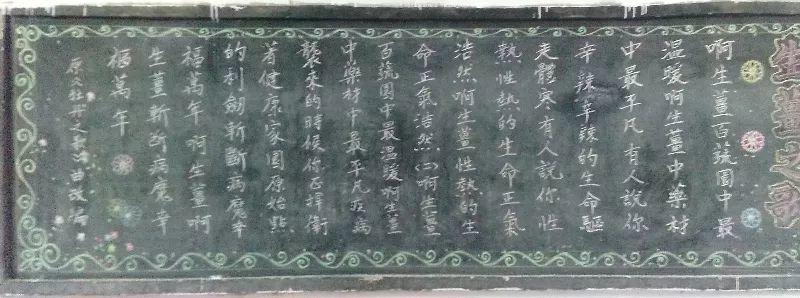 生薑之歌
啊生薑百蔬園中最
溫暖啊生薑中藥材
中最平凡有人說你
辛辣辛辣的生命驅
走體寒有人說你性
熱性熱的生命正氣
浩然啊生薑性熱的生
命正氣浩然(二)啊生薑
百蔬園中最溫暖啊生薑
中藥材中最平凡疫病
襲來的時候你正捍衛
着健康家園原始點
的利劍斬斷病魔幸
福萬年啊生薑啊
生薑斬斷病魔幸
福萬年